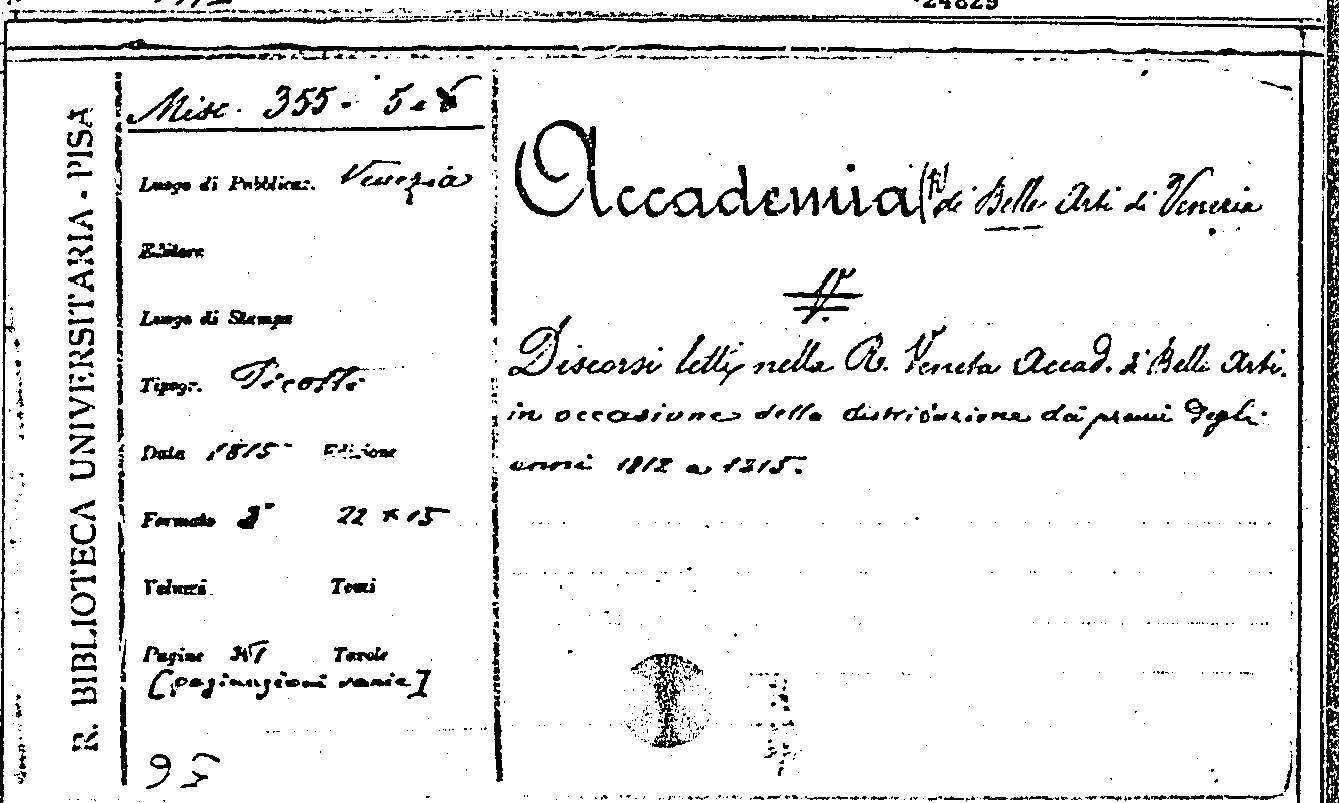 24829
R. BIBLIOTECA UNIVERSITARIA - PISA
Misc. 355. 5
Luogo di Pubblicaz. Venezia
Editore
Luogo di Stampa
Tipogr. Picotti
Data 1815 Edizione
Formato 8° 22 x 15
Volumi Tomi
Pagine Tavole
[paginazioni varie]
Accademia (R) di Belle Arti di Venezia
Discorsi letti nella R. Veneta Accad. di Belle Arti.
in occasione della distribuzione dei premi degli
anni 1812 a 1815.